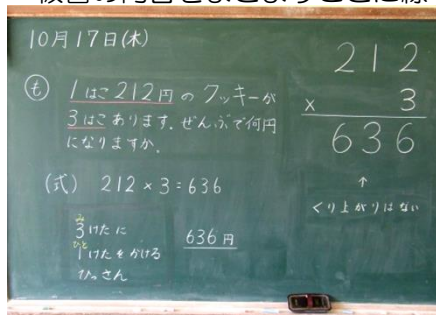 10月17日(木)
も 1はこ212円のクッキーが
3はこあります。ぜんぶで何円
になりますか。
(式) 212×3=636
636円
み
3けたに
ひと
1けたをかける
ひっさん
212
× 3
636
↑
くり上がりはない